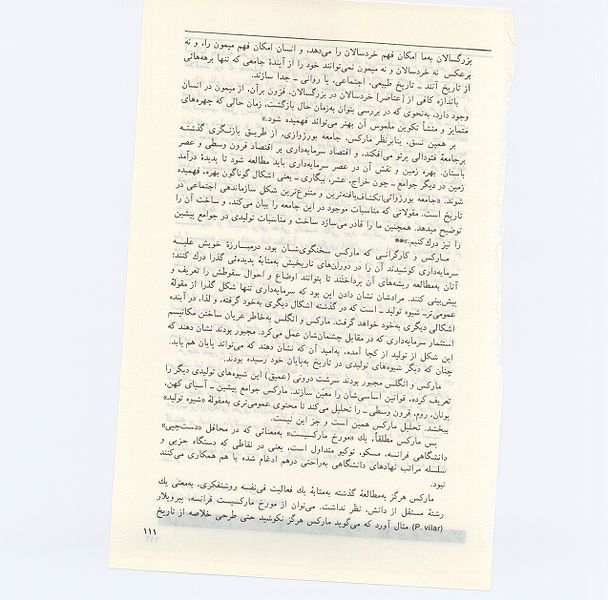 بزرگسالان به‌ما امکان فهم خردسالان را می‌دهد، و انسان امکان فهم میمون را، و نه
برعکس نه خردسالان و نه میمون نمی‌توانند خود را از آیندهٔ جامعی که تنها برهه‌هائی
از تاریخ آنند ـ تاریخ طبیعی، اجتماعی، یا روانی ـ جدا سازند.
باندازه کافی از [عناصر] خردسالان در بزرگسالان، فزون برآن، از میمون در انسان
وجود دارد، به‌نحوی که در بررسی بتوان به‌زمان حال بازگشت، زمان حالی که چهره‌های
متمایز و منشأ تکوین ملموس آن بهتر می‌تواند فهمیده شود.»
بر همین نسق، بنابرنظر مارکس، جامعه بورژوازی، از طریق بازنگری گذشته
برجامعهٔ فئودالی پرتو می‌افکند، و اقتصاد سرمایه‌داری بر اقتصاد قرون وسطی و عصر
باستان. بهره زمین و نقش آن در عصر سرمایه‌داری باید مطالعه شود تا پدیدهٔ درآمد
زمین در دیگر جوامع ـ چون خراج، عشر، بیگاری ـ یعنی اشکال گوناگون بهره، فهمیده
شوند. «جامعه بورژوائی انکشاف‌یافته‌ترین و متنوع‌ترین شکل سازماندهی اجتماعی در
تاریخ است. مقولاتی که مناسبات موجود در این جامعه را بیان می‌کند، و ساخت آن را
توضیح میدهد. همچنین ما را قادر می‌سازد ساخت و مناسبات تولیدی در جوامع پیشین
را نیز درك کنیم.»**
مارکس و کارگرانی که مارکس سخنگوی‌شان بود، درمبارزهٔ خویش علیه
سرمایه‌داری کوشیدند آن را در دوران‌های تاریخیش به‌مثابهٔ پدیده‌ئی گذرا درك کنند؛
آنان به‌مطالعه ریشه‌های آن پرداختند تا بتوانند اوضاع و احوال سقوطش را تعریف و
پیش‌بینی کنند. مرادشان نشان دادن این بود که سرمایه‌داری تنها شکل گذرا از مقولهٔ
عمومی‌تر ـ شیوه تولید ـ است که در گذشته اشکال دیگری به‌خود گرفته، و لذا، در آینده
اشکالی دیگری به‌خود خواهد گرفت. مارکس و انگلس به‌خاطر عریان ساختن مکانیسم
استثمار سرمایه‌داری که در مقابل چشمان‌شان عمل می‌کرد. مجبور بودند نشان دهند که
این شکل از تولید از کجا آمده، به‌امید آن که نشان دهند که می‌تواند پایان هم یابد.
چنان که دیگر شیوه‌های تولیدی در تاریخ به‌پایان خود رسیده بودند.
مارکس و انگلس مجبور بودند سرشت درونی (عمیق) این شیوه‌های تولیدی دیگر را
تعریف کرده، قوانین اساسی‌شان را معین سازند. مارکس جوامع پیشین ـ آسیای کهن،
یونان، روم، قرون وسطی ـ را تحلیل می‌کند تا محتوی عمومی‌تری به‌مقولهٔ «شیوه تولید»
ببخشد. تحلیل مارکس همین است و جز این نیست.
پس مارکس مطلقاً، یك «مورخ مارکسیست» به‌معنائی که در محافل «دست‌چپی»
دانشگاهی فرانسه، مسکو، توکیو متداول است، یعنی در نقاطی که دستگاه حزبی و
سلسله مراتب نهادهای دانشگاهی به‌راحتی درهم ادغام شده یا هم همکاری می‌کنند
نبود.
مارکس هرگز به‌مطالعهٔ گذشته به‌مثابهٔ یك فعالیت فی‌نفسه روشنفکری، به‌معنی یك
رشتهٔ مستقل از دانش، نظر نداشت. می‌توان از مورخ مارکسیست فرانسه، پیرویلار
(P. vilar) مثال آورد که می‌گوید مارکس هرگز نکوشید حتی طرحی خلاصه از تاریخ
۱۱۱